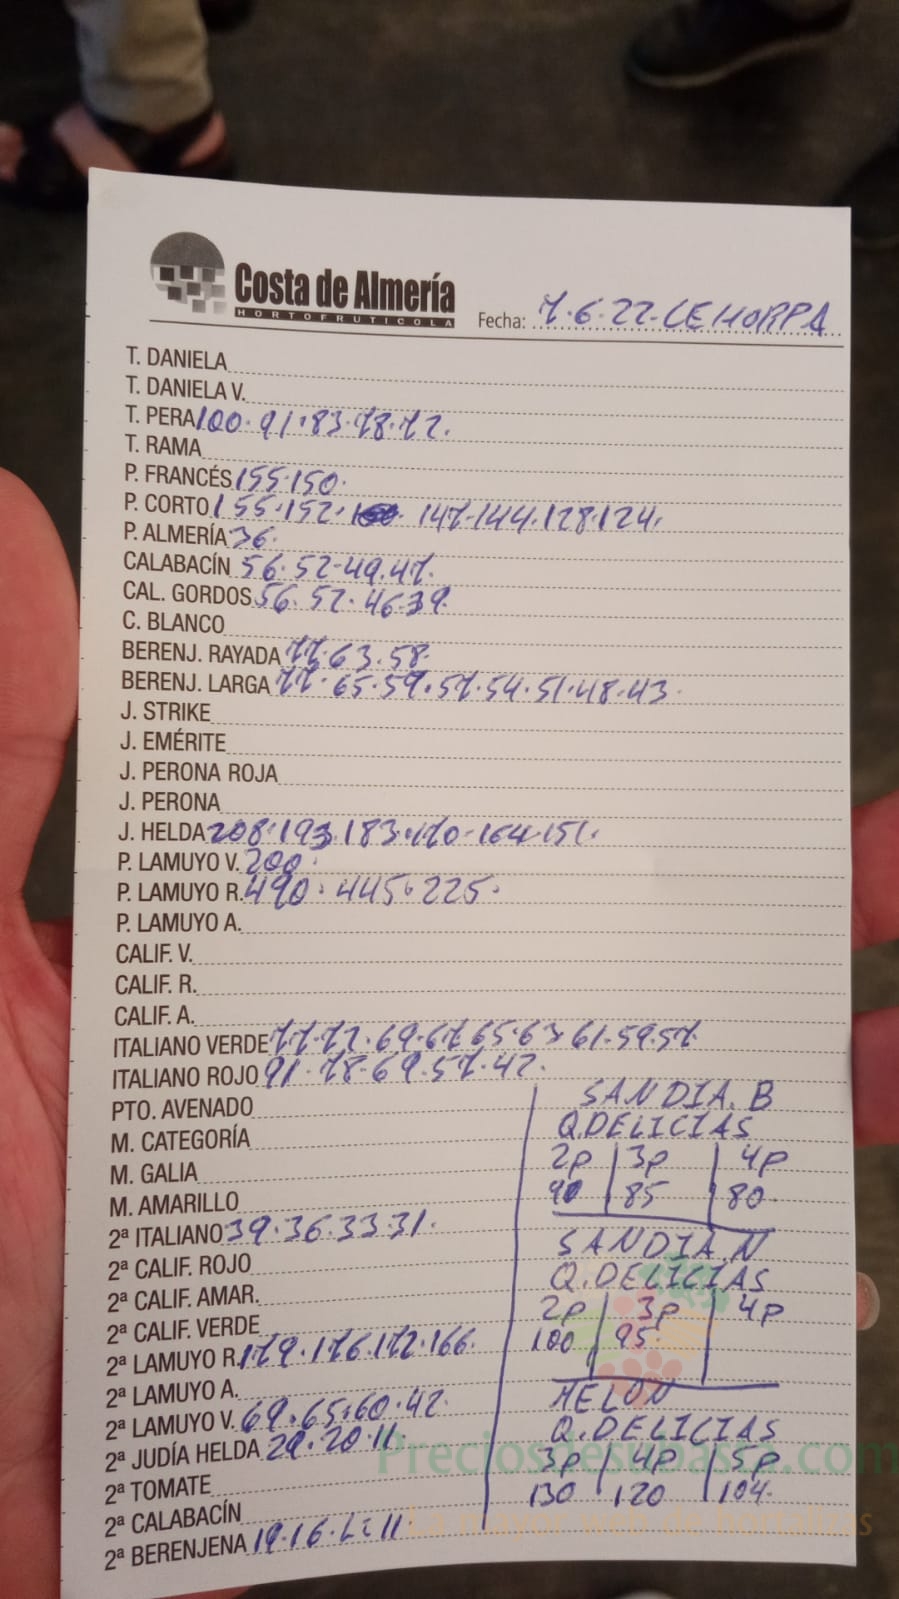 Costa de Almería
HORTOFRUTICOLA
Fecha: 7.6.22.CEHORPA
T. DANIELA
T. DANIELA V.
T. PERA 100.91.83.78.72.
T. RAMA
P. FRANCÉS 155.150.
P. CORTO 155.152. 147.144.128.124.
P. ALMERÍA 36.
CALABACÍN 56.52.49.47.
CAL. GORDOS 56.52.46.39.
C. BLANCO
BERENJ. RAYADA 77.63.58.
BERENJ. LARGA 77.65.59.57.54.51.48.43.
J. STRIKE
J. EMÉRITE
J. PERONA ROJA
J. PERONA
J. HELDA 208.193.183.170.164.151.
P. LAMUYO V. 200.
P. LAMUYO R. 490.445.225.
P. LAMUYO A.
CALIF. V.
CALIF. R.
CALIF. A.
ITALIANO VERDE 77.72.69.67.65.63.61.59.57.
ITALIANO ROJO 91.78.69.57.42.
PTO. AVENADO
M. CATEGORÍA
M. GALIA
M. AMARILLO
2ª ITALIANO 39.36.33.31.
2ª CALIF. ROJO
2ª CALIF. AMAR.
2ª CALIF. VERDE
2ª LAMUYO R. 179.176.172.166.
2ª LAMUYO A.
2ª LAMUYO V. 69.65.60.42.
2ª JUDÍA HELDA 29.20.11.
2ª TOMATE
2ª CALABACÍN
2ª BERENJENA 19.16. 11
SANDIA.B
Q.DELICIAS
2P 3P 4P
90 85 80.
SANDIA.N
Q.DELICIAS
2P 3P 4P
100 95.
MELON
Q.DELICIAS
3P 4P 5P
130 120 104.
Preciosdesubasta.com
La mayor web de hortalizas